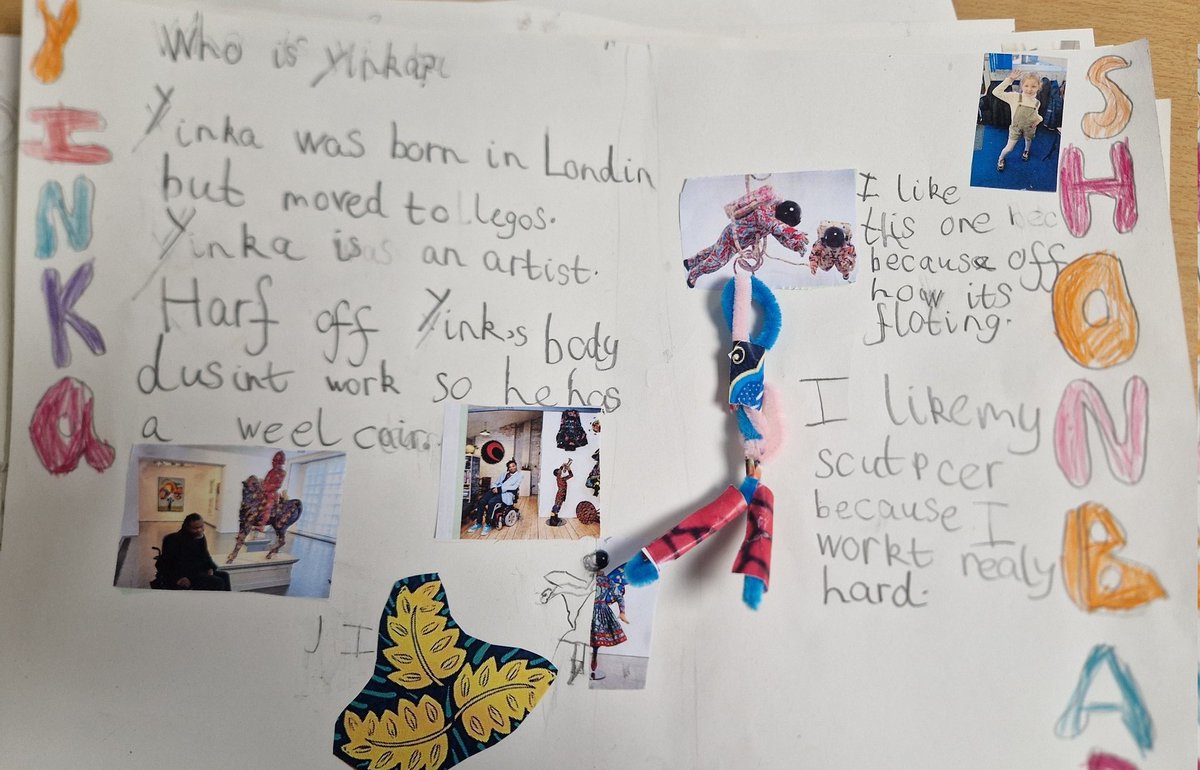 YINKA
Who is Yinka?
Yinka was born in Londin
but moved to Legos.
Yinka is an artist.
Harf off Yink,s body
dusint work so he has
a weel cairn.
J I
I like
this one bec
because off
how its
floting.
I like my
scutpcer
because I
workt realy
hard.
SHONBA